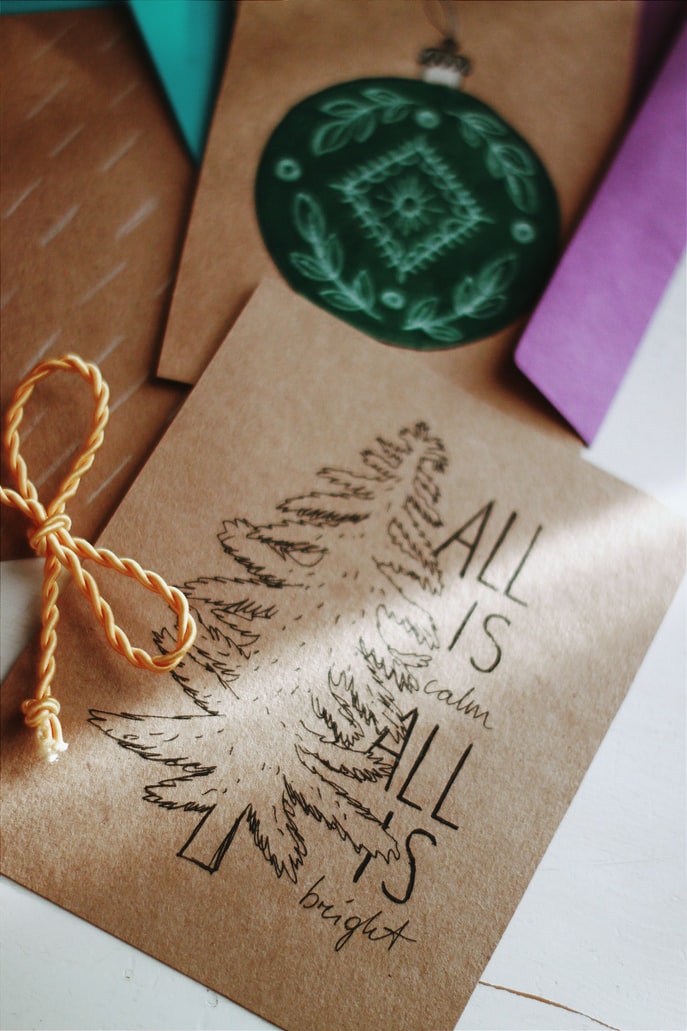 ALL
IS
calm
ALL
IS
bright